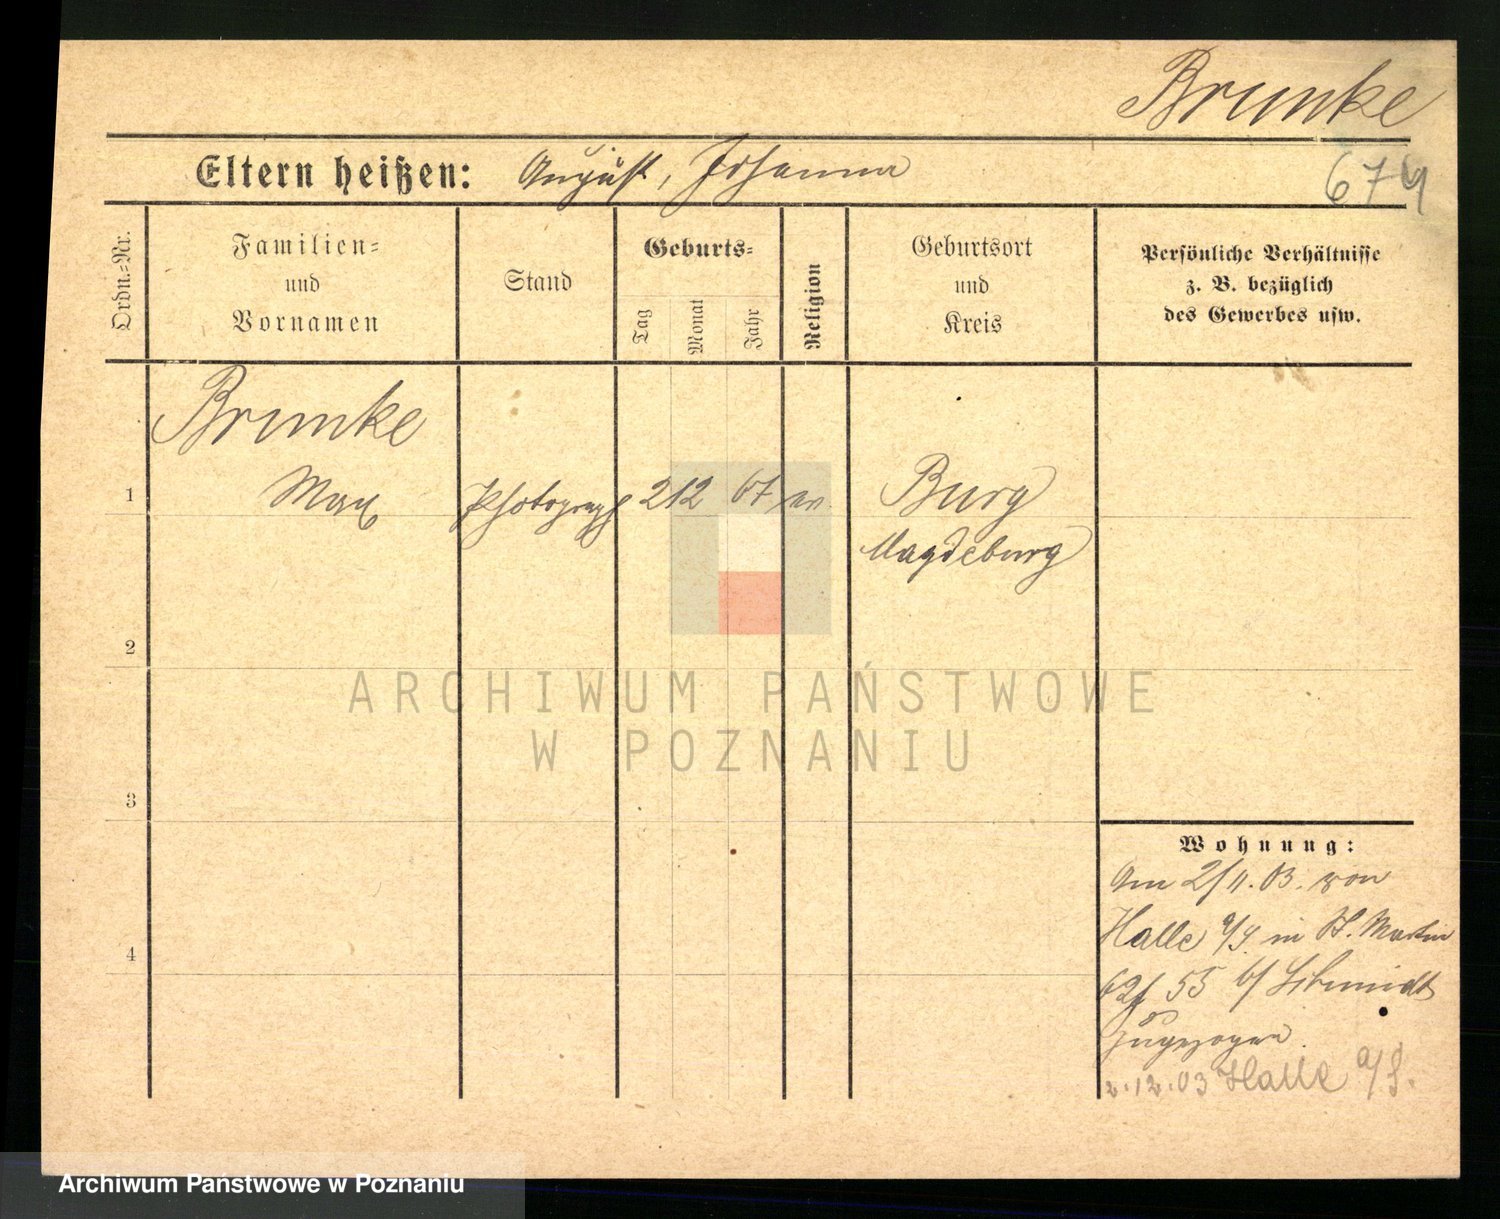 Brunke
Eltern heißen: August, Johanna
674
Ordn.=Nr.
Familien=
und
Vornamen
Stand
Geburts=
Tag
Monat
Jahr
Religion
Geburtsort
und
Kreis
Persönliche Verhältnisse
z. B. bezüglich
des Gewerbes usw.
Brunke
1 Max Photograph 2 12 67 ev. Burg
Magdeburg
2
3
4
Wohnung:
Am 2/11.03. von
Halle a/S in St. Martin
55 b/ Schmidt
zugezogen.
2.12.03 Halle a/S.
ARCHIWUM PAŃSTWOWE
W POZNANIU
Archiwum Państwowe w Poznaniu